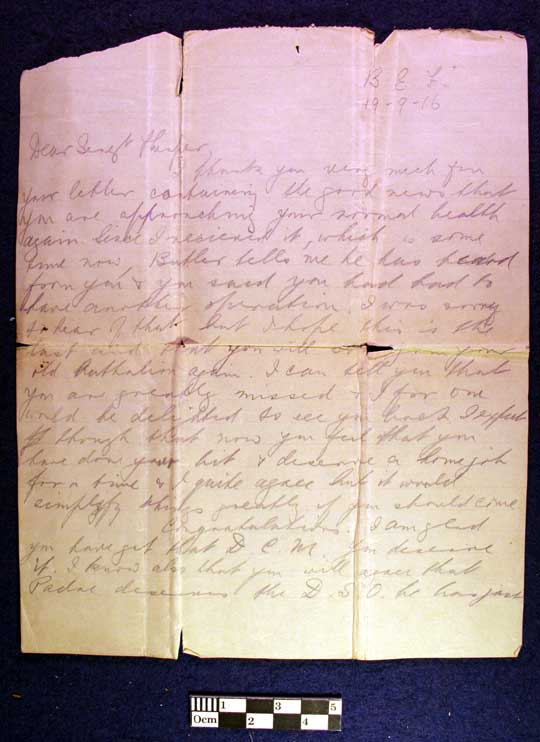 B E F
19-9-16
Dear Sergt
I thank you very much for
your letter containing the good news that
you are approaching your normal health
again. Since I recieved it, which is some
time now Butler tells me he has heard
form you & you said you had had to
have another operation. I was sorry
to hear of that but I hope this is the
last and that you will your
old Battalion again. I can tell you that
you are greatly missed & I for one
would be delighted to see you back I expect
though that now you feel that you
have don your bit & deserve a home job
for a time & I quite agree but it would
simplyfy things greatly if you should come
Congratulations. I am glad
you have got that D C M You deserve
it. I know also that you will agree that
Padre deserves the D.S.O. he has just
0cm 1 2 3 4 5